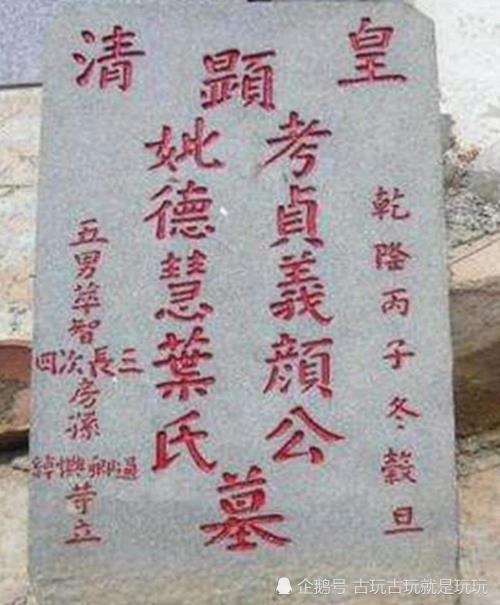 皇清
乾隆丙子冬穀旦
顯
考貞義顏公
妣德慧葉氏
墓
五男萃智
三長次四
房孫
等立
企鹅号 古玩古玩就是玩玩